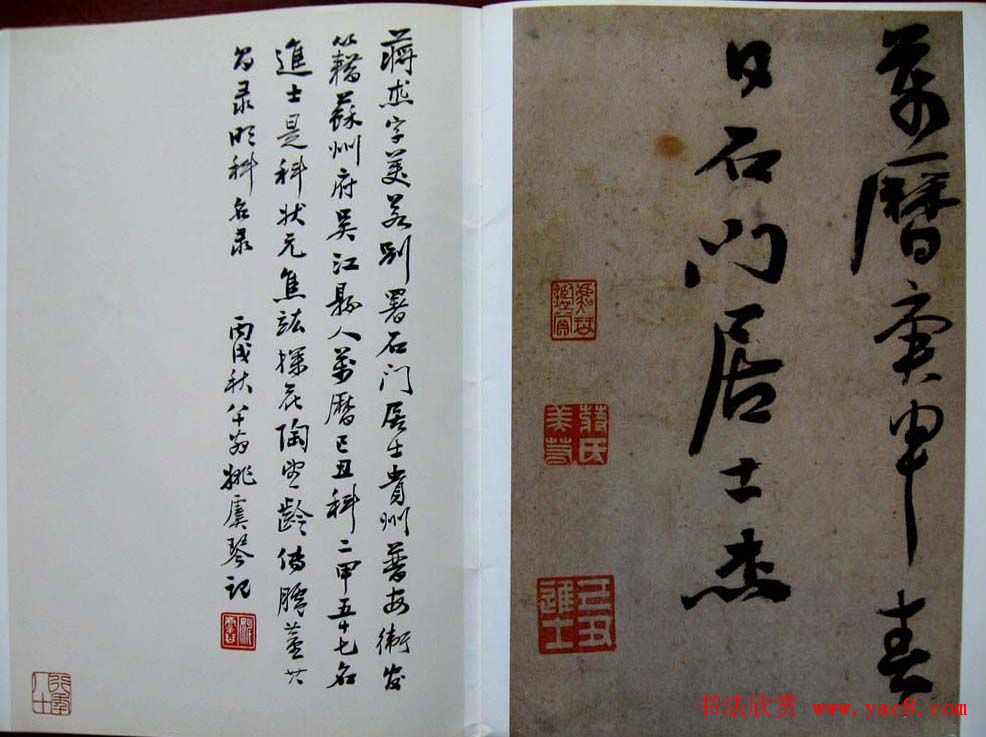 萬曆庚申春
日石门居士杰
虞琴鑑賞
蔣氏美若
己丑進士
蔣杰字美若別署石门居士貴州普安衛官
籍蘇州府吳江縣人萬曆己丑科二甲五十七名
進士是科狀元焦竑探花陶望齡傳臚董其
昌录明科名录
丙戌秋八十翁姚虞琴記
书法欣赏 www.yac8.com